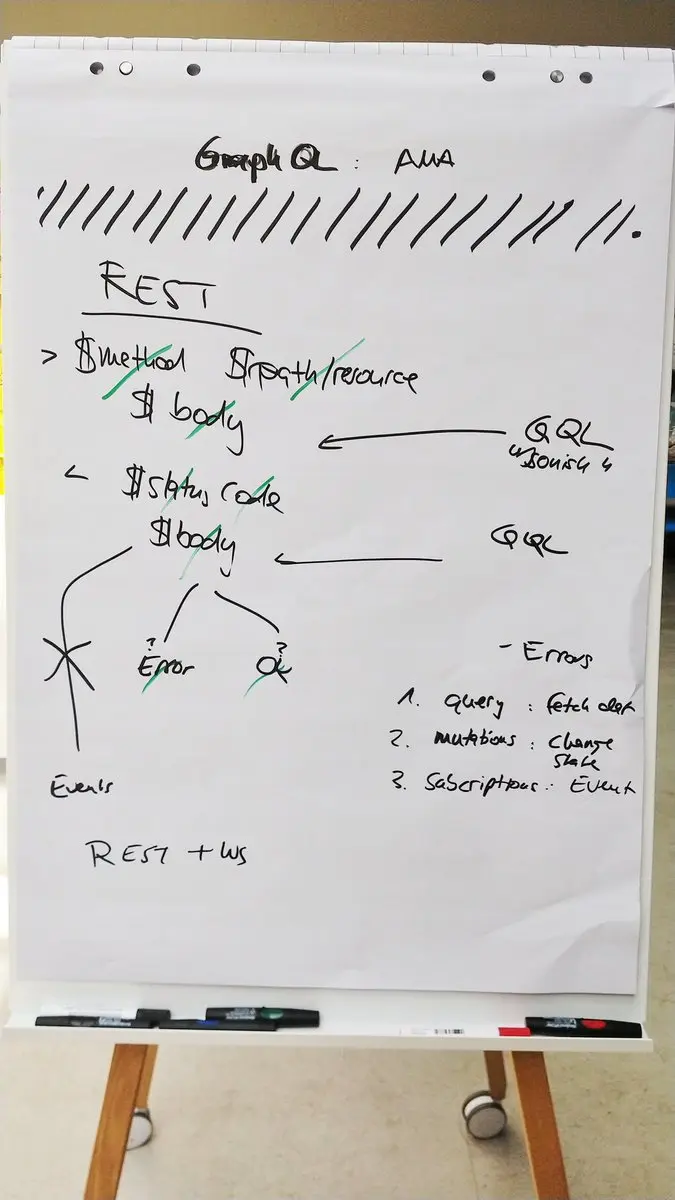 GraphQL : AMA
REST
> $method $path/resource
$ body
GQL
"Jsonish"
< $status code
$body
GQL
? ?
Error Ok
- Errors
1. query : fetch dat
2. mutations : Change
State
3. Subscriptions : Event
Events
REST + WS